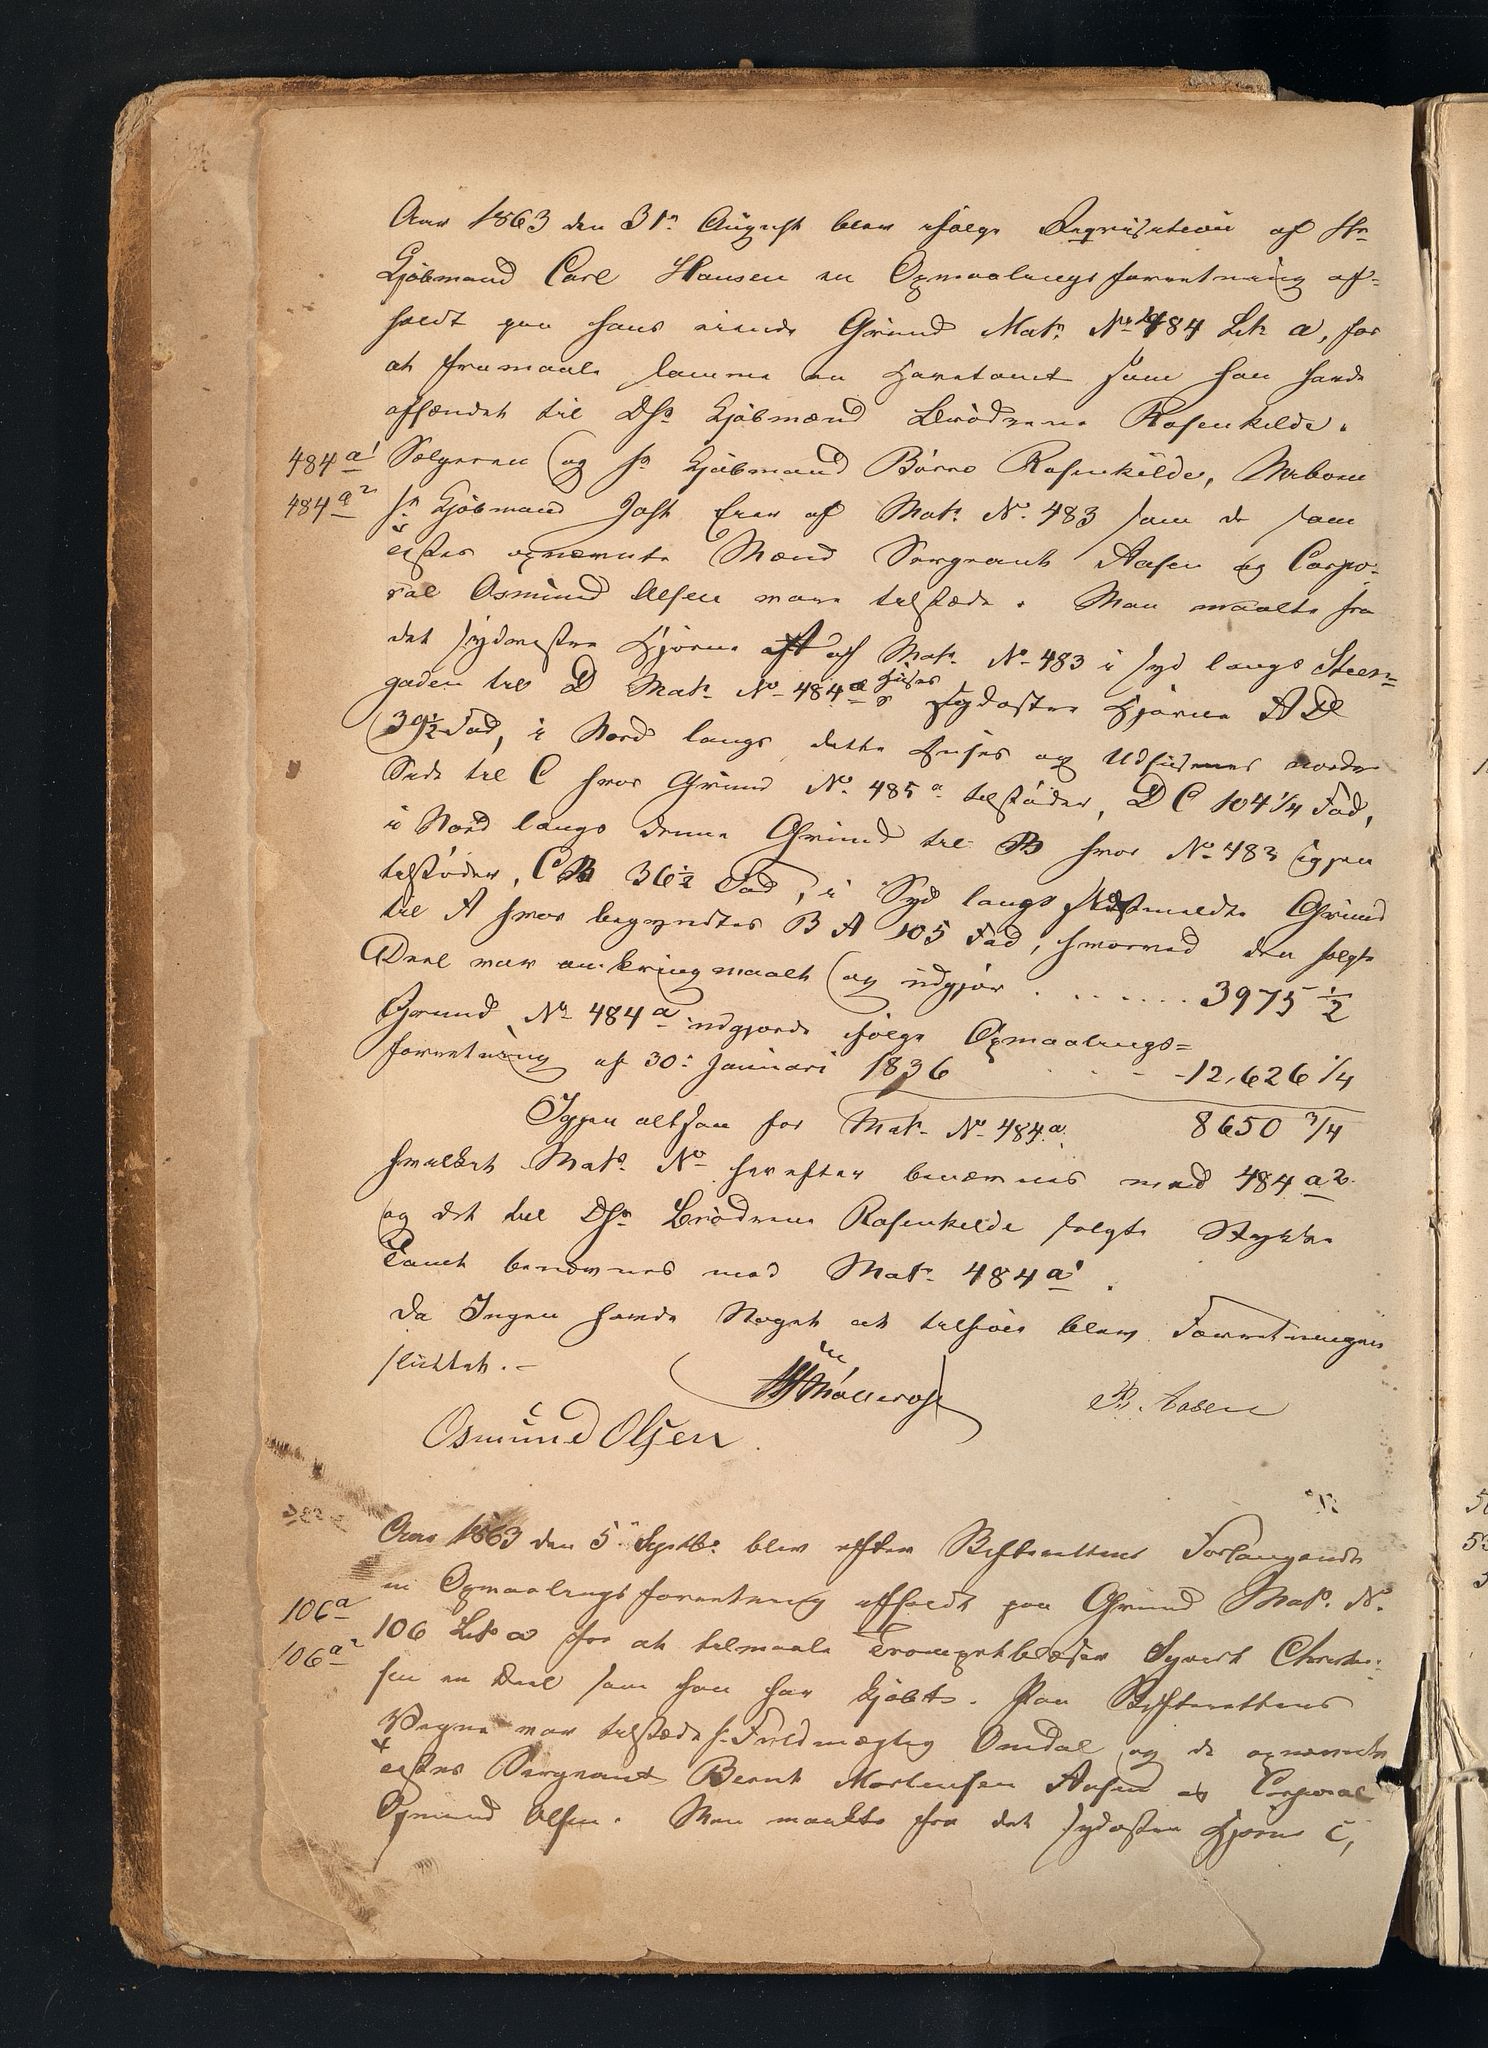 Aar 1863 den 31n August blev ifølge Reqvisition af Hr
Kjøbmand Carl Hansen en Opmaalingsforretning af-
holdt paa hans eiende Grund Matr. No 484 Litr a, for
at framaale samme en Havetomt som han havde
afhændet til DHr Kjøbmænd Brødrene Rosenkilde.
484 a1 Sælgeren og Hr Kjøbmand Børre Rosenkilde, Naboen
484 a2 Hr Kjøbmand Jost Eier af Matr. No. 483 som de som
eistes opnævnte Mænd Sergeant Aasen og Corpo-
ral Osmund Olsen vare tilstæde. Man maalte fra
det sydvestre Hjørne A af Matr. No 483 i Syd langs Steen-
gaden til D Matr. No 484 a Huses sydostre Hjørne A D
39½ Fod, i Nord langs dette Huses og Udhusenes nordre
Side til C hvor Grund No. 485 a tilstøder, D C 104 1/4 Fod,
i Nord langs denne Grund til B hvor No 483 igjen
tilstøder, C B 36½ Fod, i Syd langs sidstmeldte Grund
til A hvor begyndtes B A 105 Fod, hvorved den solgte
Deel var omkringmaalt og udgjør . . . . . . . 3975 1/2
Grund No 484 a udgjorde ifølge Opmaalings=
forretning af 30: Januari 1836 . . . - 12,626 1/4
Igjen altsaa for Matr. No 484 a. 8650 3/4
hvilket Matr. No herefter benævnes med 484 a2
og det til DHr Brødrene Rosenkilde solgte Stykke
Tomt benævnes med Matr. 484 a1.
Da Ingen havde Noget at tilføie blev Forretningen
sluttet. -
B. Aasen
Osmund Olsen.
Aar 1863 den 5 Septbr. blev efter Bestyrelsens Forlangende
en Opmaalingsforretning afholdt paa Grund Matr. No.
106 a 106 Litr a for at tilmaale Trompetblæser Syvert Christen-
106 a2 sen en Deel som han har kjøbt. Paa
Vegne var tilstæde Hr. Fuldmægtig Omdal og de opnævnte
eistes Sergeant Bernt Mortensen Aasen og Corporal
Osmund Olsen. Man maalte fra det sydostre Hjørne C,